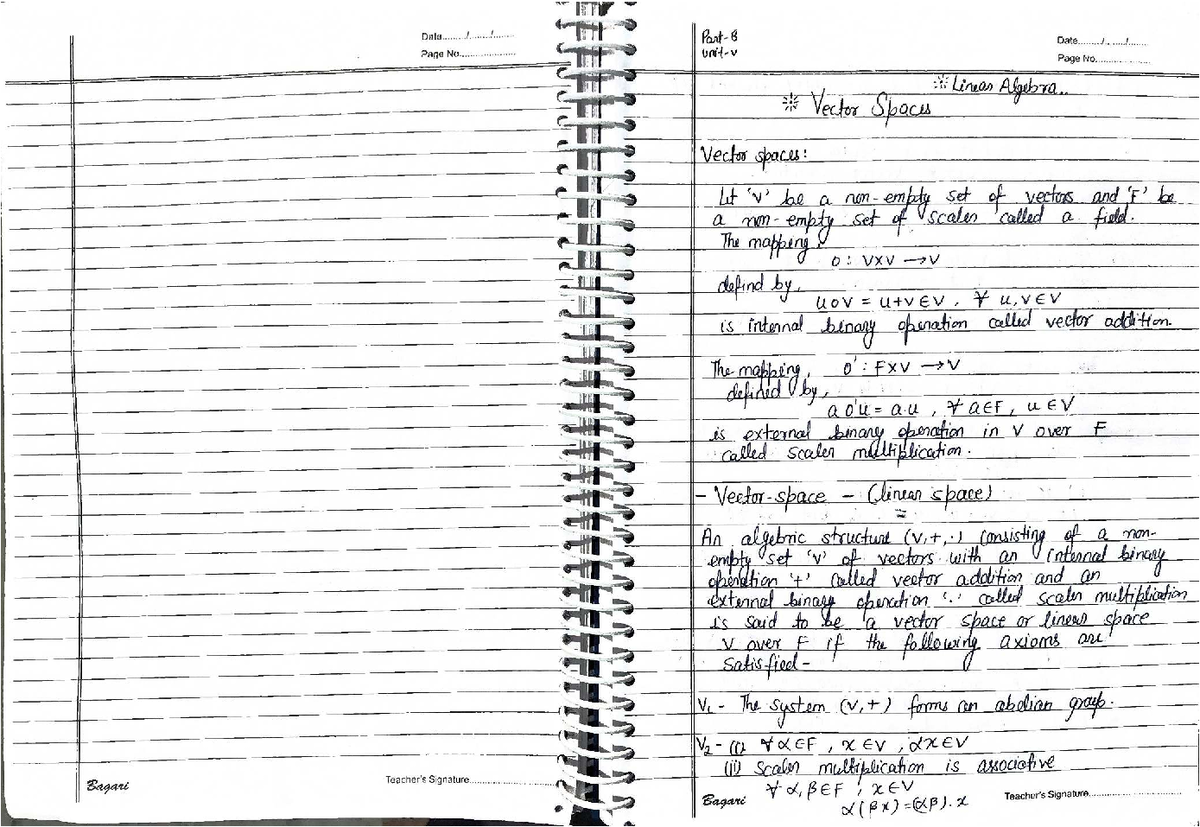 Date....../....../......
Page No..................
Bagari
Teacher's Signature..................
Part-B
Unit-V
Date....../....../......
Page No..................
⁕ Linear Algebra..
⁕ Vector Spaces
Vector spaces:
Let 'V' be a non-empty set of vectors and 'F' be
a non-empty set of scaler called a field.
The mapping,
o : V×V → V
defind by,
u o v = u+v ∈ V, ∀ u,v ∈ V
is internal binary operation called vector addition.
The mapping, o' : F×V → V
defined by,
a o' u = a.u , ∀ a∈F, u ∈ V
is external binary operation in V over F
called scaler multiplication.
- Vector-space - (linear space)
An algebric structure (V,+,.) consisting of a non-
empty set 'V' of vectors with an internal binary
operation '+' called vector addition and an
external binary operation '.' called scaler multiplication
is said to be a vector space or linear space
V over F if the following axioms are
satisfied-
V₁ - The system (V,+) forms an abelian group.
V₂ - (i) ∀ α∈F , x ∈V , αx∈V
(ii) Scaler multiplication is associative
∀ α, β∈F , x ∈V
α(βx) = (αβ).x
Bagari
Teacher's Signature..................